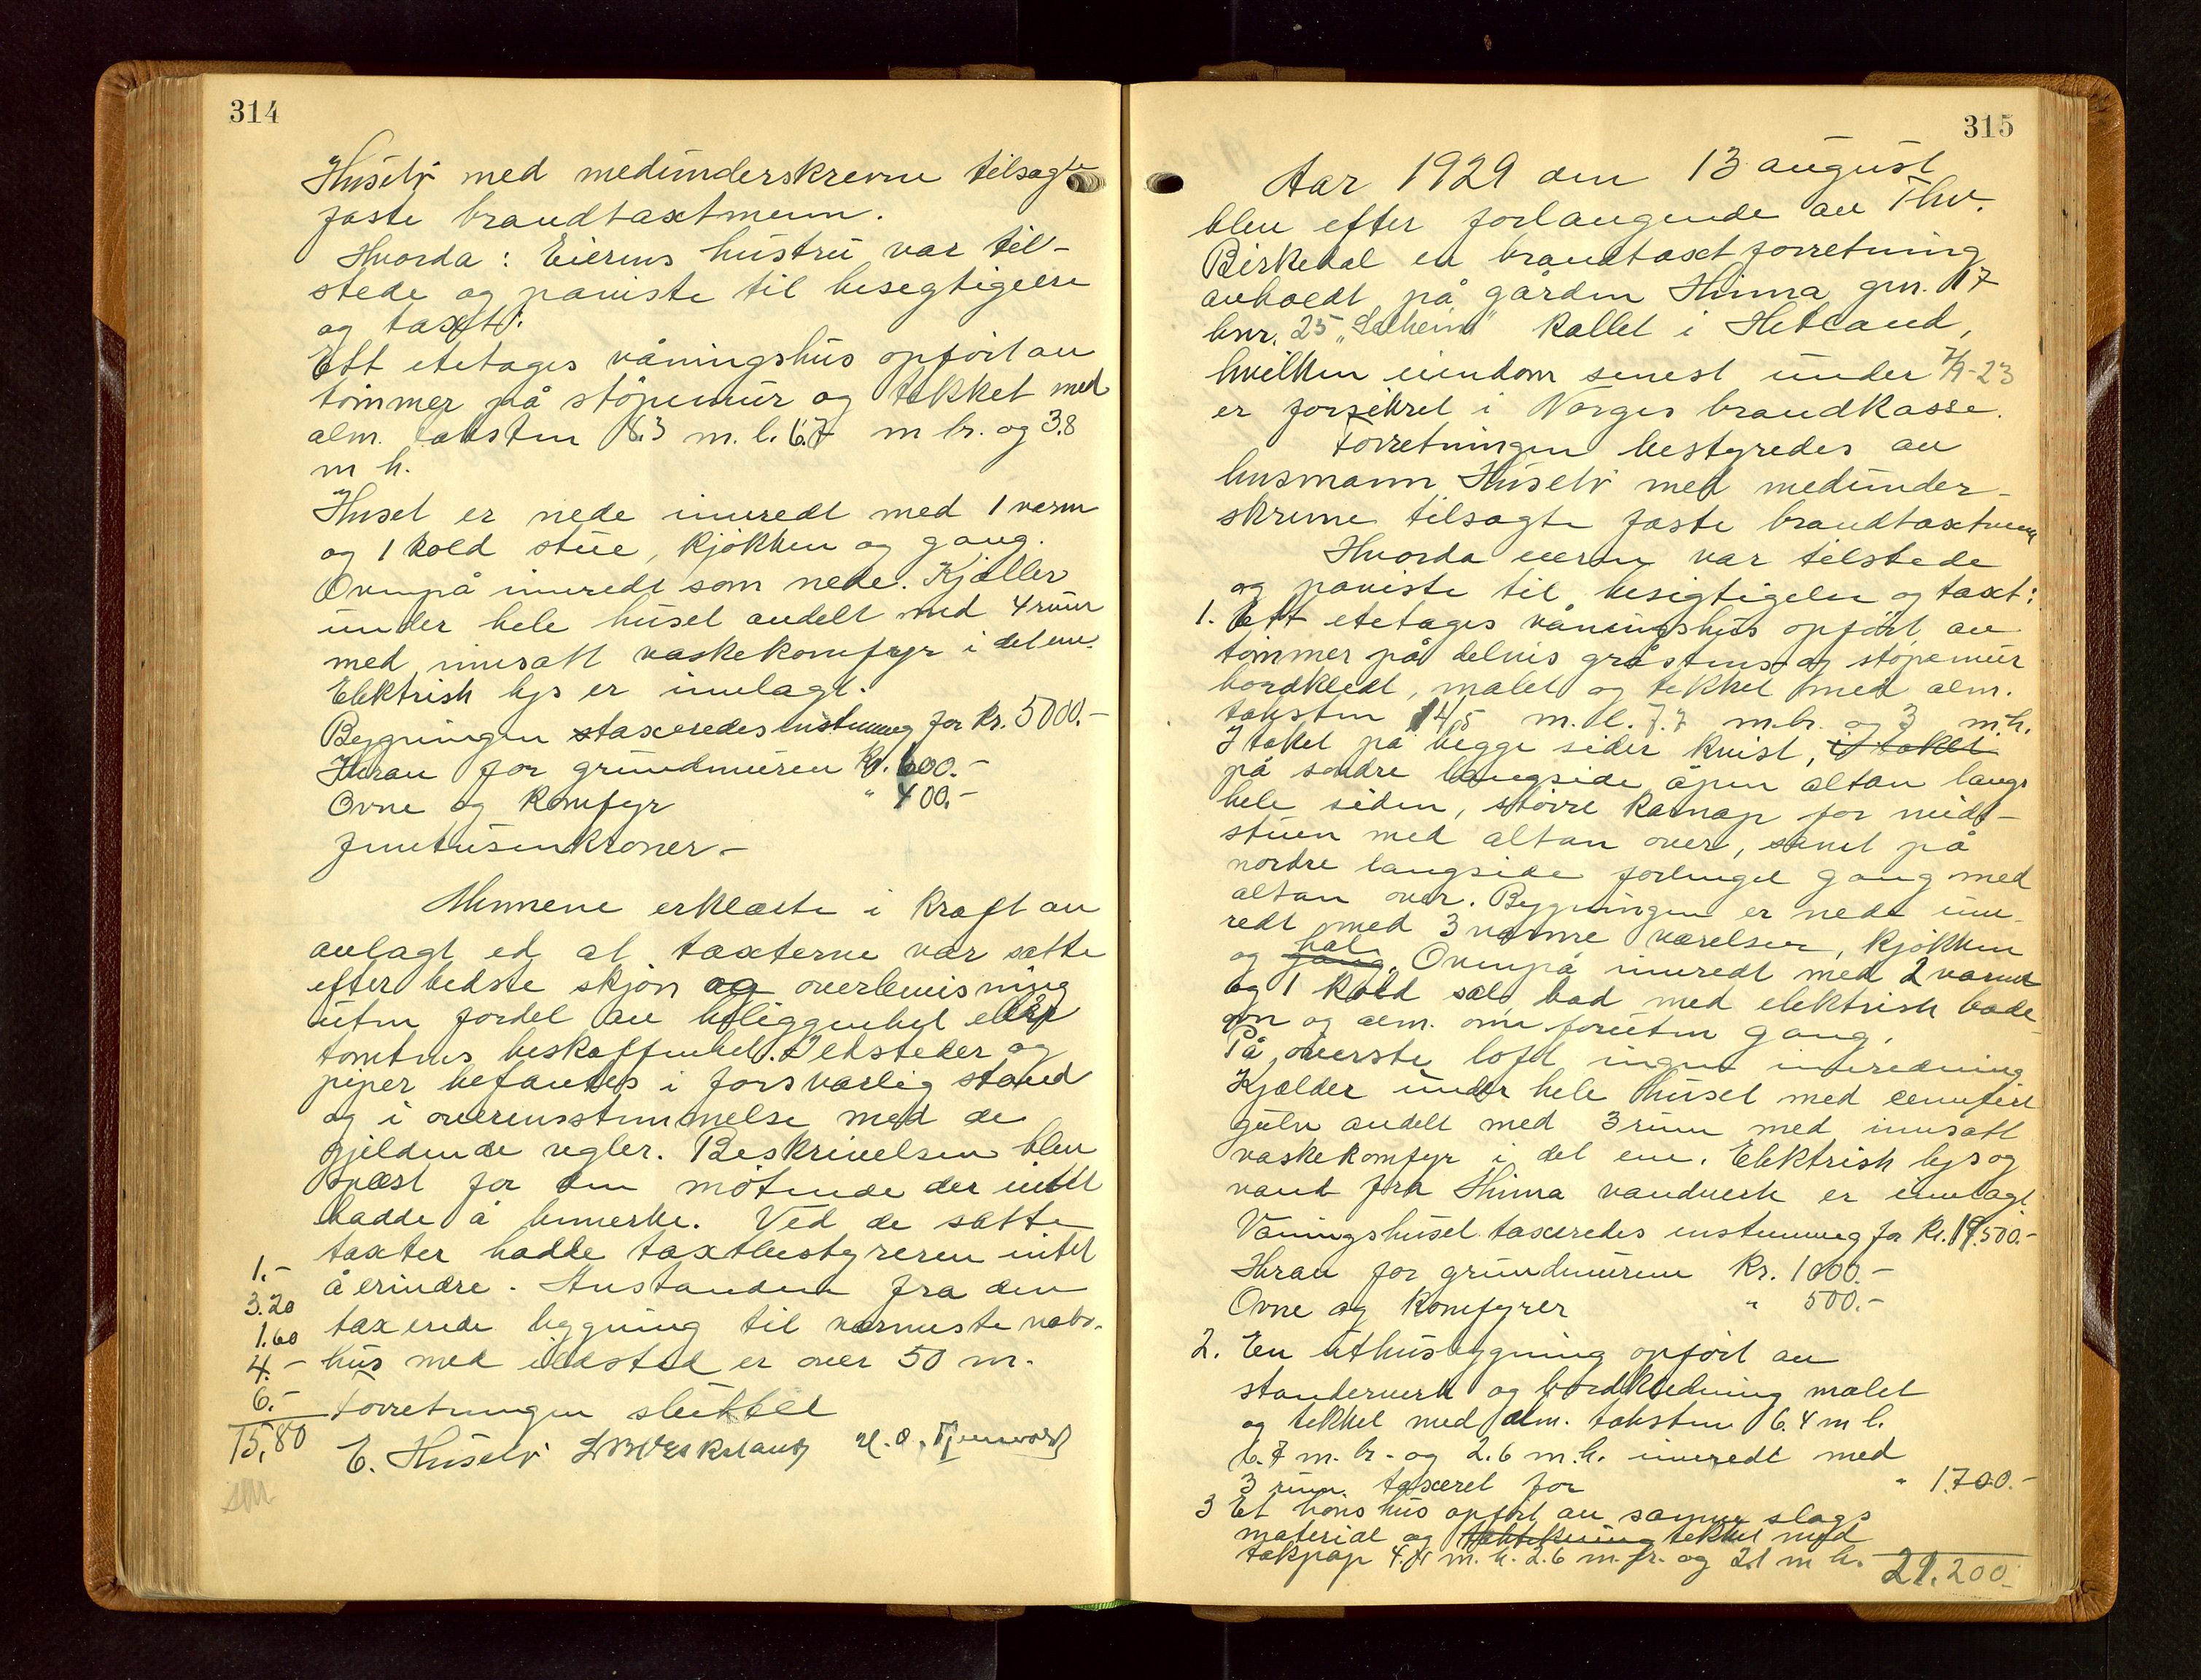 314
Huselv med medunderskrevne tilsagte
faste brandtaxtmenn.
Hvorda: Eierens hustru var til-
stede og paviste til besegtigelse
og taxt:
Ett etetages våningshus opført av
tømmer på støpemur og tekket med
alm. taksten 8.3 m. l. 6.7 m br. og 3.8
m h.
Huset er nede innredt med 1 varm
og 1 kold stue, kjøkken og gang.
Ovenpå innredt som nede. Kjæller
under hele huset avdelt med 4 rum
med innsatt vaskekomfyr i det ene.
Elektrisk lys er innlagt.
Bygningen taxeredes enstemmig for kr. 5000.-
Herav for grundmuren kr. 600.-
Ovne og komfyr " 400.-
Femtusenkroner.-
Mennene erklærte i kraft av
avlagt ed at taxterne var satte
efter bedste skjøn og overbevisning
uten fordel av beliggenhet eller
tomtens beskaffenhet. Ildsteder og
piper befantes i forsvarlig stand
og i overensstemmelse med de
gjeldende regler. Beskrivelsen blev
oplæst for den møtende der intet
hadde å bemerke. Ved de satte
taxter hadde taxtbestyreren intet
å erindre. Avstanden fra den
taxerede bygning til nærmeste nabo-
hus med ildsted er over 50 m.
Forretningen sluttet
E. Huselv
1.-
3.20
1.60
4.-
6.-
15,80
315
Aar 1929 den 13 august
blev efter forlangende av Thv.
Birkedal en brandtaxtforretning
avholdt på gården Hinna gnr. 17
bnr. 25 "Solheim" kallet i Hetland,
hvilken eiendom senest under 7/9-23
er forsikret i Norges brandkasse.
Forretningen bestyredes av
husmann Huselv med medunder-
skrevne tilsagte faste brandtaxtmenn
Hvorda eieren var tilstede
og paviste til besigtigelse og taxt:
1. Ett etetages våningshus opført av
tømmer på delvis gråstens- og støpemur
bordkledt, malet og tekket med alm.
taksten 14,5 m. l. 7.7 m. br. og 3 m. h.
I taket på begge sider kvist, i taket
på søndre langside åpen altan langs
hele siden, større karnap for midt-
stuen med altan over, samt på
nordre langside forlenget gang med
altan over. Bygningen er nede inn-
redt med 3 varme værelser, kjøkken
og gang hal. Ovenpå innredt med 2 varme
og 1 kold sal, bad med elektrisk bade-
ovn og alm. ovn foruten gang.
På øverste loft ingen innredning
Kjælder under hele huset med cementert
gulv avdelt med 3 rum med innsatt
vaskekomfyr i det ene. Elektrisk lys og
vand fra Hinna vandverk er innlagt.
Våningshuset taxeredes enstemmig for kr. 19.500.-
Herav for grundmuren kr. 1000.-
Ovne og komfyrer " 500.-
2. En uthusbygning opført av
standerverk og bordkledning malet
og tekket med alm. taksten 6.4 m l.
6.7 m. br. og 2.6 m. h. innredt med
3 rum. taxeret for " 1.700.-
3 Et hønshus opført av samme slags
material og taktekning tekket med
takpap 4.4 m. l. 2.6 m. br. og 2.1 m h.
21.200.-